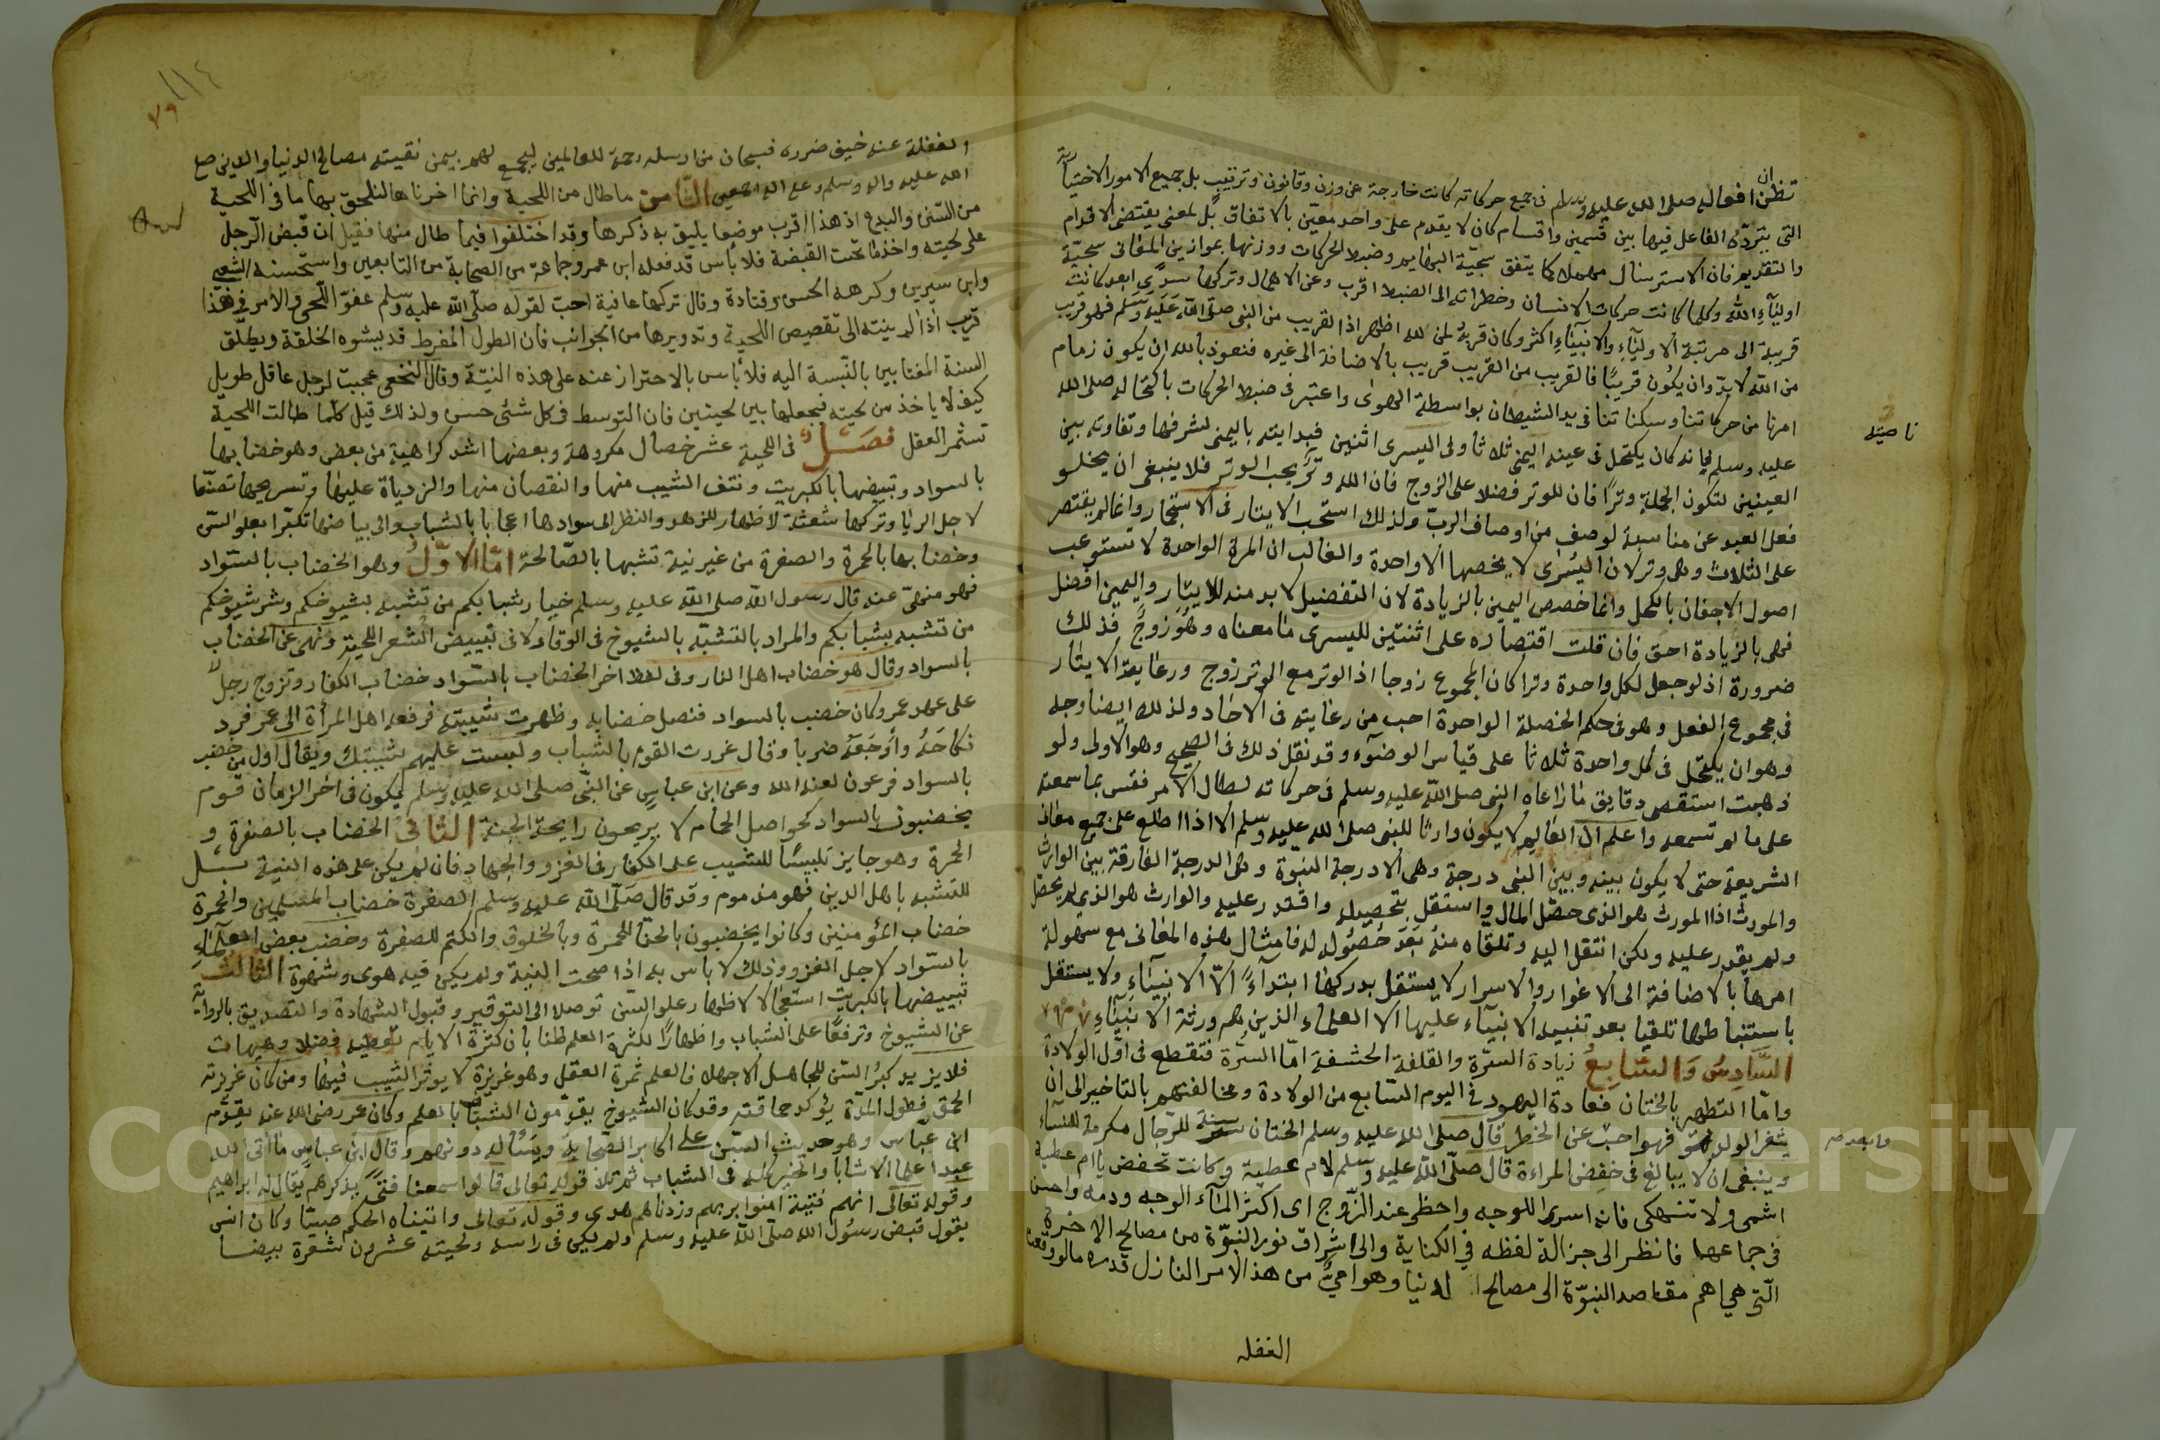 تظنن ان افعاله صلى الله عليه وسلم فى جميع حركاته كانت خارجة عن وزن وقانون وترتيب بل جميع الامور الاختيارية
التى يتردد الفاعل فيها بين قسمين واقسام كان لا يقدم على واحد معين بالاتفاق بل لمعنى يقتضى الاقدام
والتقديم فان الاسترسال مهملا كما يتفق سجية البهايم وضبط الحركات ووزنها بموازين المعانى سجية
اولياء الله وكلما كانت حركات الانسان وخطراته الى الضبط اقرب وعن الاهمال وتركها سدى ابعد كانت
قريبة الى مرتبة الاولياء والانبياء اكثر وكان قربه من لله اظهر اذ القريب من النبى صلى الله عليه وسلم فهو قريب
من الله لا بد وان يكون قريبا فالقريب من القريب قريب بالاضافة الى غيره فنعوذ بالله ان يكون زمام
امرنا من حركاتنا وسكناتنا فى يد الشيطان بواسطة الهوى واعتبر فى ضبط الحركات باكتحاله صلى الله
عليه وسلم فانه كان يكتحل فى عينه اليمنى ثلاثا وفى اليسرى اثنين فبدايته باليمنى لشرفها وتفاوته بين
العينين لتكون الجملة وترا فان للوتر فضلا على الزوج فان الله وتر يحب الوتر فلا ينبغى ان يخلو
فعل العبد عن مناسبة لوصف من اوصاف الرب ولذلك استحب الايتار فى الاستجمار وانما لم يقتصر
على الثلاث وهى وتر لان اليسرى لا يخصها الا واحدة والغالب ان المرة الواحدة لا تستوعب
اصول الاجفان بالكحل وانما خصص اليمين بالزيادة لان التفضيل لا بد منه للايتار واليمين افضل
فهى بالزيادة احق فان قلت اقتصاره على اثنتين لليسرى ما معناه وهو زوج فذلك
ضرورة اذ لو جعل لكل واحدة وترا كان المجموع زوجا اذ الوتر مع الوتر زوج ورعاية الايتار
فى مجموع الفعل وهو فى حكم الخصلة الواحدة احب من رعايته فى الاحاد ولذلك ايضا وجه
وهو ان يكتحل فى كل واحدة ثلاثا على قياس الوضوء وقد نقل ذلك فى الصحيح وهو الاولى ولو
ذهبت استقصى دقايق ما راعاه النبى صلى الله عليه وسلم فى حركاته لطال الامر فقس بما سمعته
على ما لم تسمعه واعلم ان العالم لا يكون وارثا للنبى صلى الله عليه وسلم الا اذا اطلع على جميع معانى
الشريعة حتى لا يكون بينه وبين النبى درجة وهى الا درجة النبوة وهى الدرجة الفارقة بين الوارث
والمورث اذا المورث هو الذى حصل المال واستقل بتحصيله واقتدر عليه والوارث هو الذى لم يحصل
ولم يقدر عليه ولكن انتقل اليه وتلقاه منه بعد حصوله له فامثال هذه المعانى مع سهولة
امرها بالاضافة الى الاغوار والاسرار لا يستقل بدركها ابتداء الا الانبياء ولا يستقل
باستنباطها تلقيا بعد تنبيه الانبياء عليها الا العلماء الذين هم ورثة الانبياء
السادس والسابع زيادة السرة والقلفة الحشفة اما السرة فتقطع فى اول الولادة
واما التطهر بالختان فعادة اليهود فى اليوم السابع من الولادة ومخالفتهم بالتاخير الى ان
يثغر الولد فهو احب عن الخطر قال صلى الله عليه وسلم الختان سنة للرجال مكرمة للنساء
وينبغى ان لا يبالغ فى خفض المراءة قال صلى الله عليه وسلم لام عطية وكانت تخفض يا ام عطية
اشمى ولا تنهكى فانه اسرى للوجه واحظى عند الزوج اى اكثر لماء الوجه ودمه واحسن
فى جماعها فانظر الى جزالة لفظه فى الكناية والى اشراق نور النبوة من مصالح الاخرة
التى هى اهم مقاصد النبوة الى مصالح الدنيا وهو امى من هذا الامر النازل قدره ما لو وقعت
الغفله
ناصيته
١١٤
٧٩
الغفلة عنه خيف ضرره فسبحان من ارسله رحمة للعالمين ليجمع لهم بيمن نقيبته مصالح الدنيا والدين صلى
الله عليه واله وسلم وعلى اله اجمعين الثامن ما طال من اللحية وانما اخرناها لنلحق بها ما فى اللحية
من السنن والبدع اذ هذا اقرب موضع يليق به ذكرها وقد اختلفوا فيما طال منها فقيل ان قبض الرجل
على لحيته واخذ ما تحت القبضة فلا بأس قد فعله ابن عمر وجماعة من الصحابة من التابعين واستحسنه الشعبى
وابن سيرين وكرهه الحسن وقتادة وقال تركها عافية احب لقوله صلى الله عليه وسلم عفوا اللحى والامر فى هذا
قريب اذا لم ينته الى تقصيص اللحية وتدويرها من الجوانب فان الطول المفرط قد يشوه الخلقة ويطلق
السنة المغتابين بالنسبة اليه فلا بأس بالاحتراز عنه على هذه النية وقال النخعى عجبت لرجل عاقل طويل
كيف لا ياخذ من لحيته فيجعلها بين لحيتين فان التوسط فى كل شئ حسن ولذلك قيل كلما طالت اللحية
تشمر العقل فصل فى اللحية عشر خصال مكروهة وبعضها اشد كراهية من بعض وهو خضابها
بالسواد وتبييضها بالكبريت ونتف الشيب منها والنقصان منها والزدياة عليها وتسريحها تصنعا
لاجل الريا وتركها شعثة لاظهار للزهد والنظر الى سوادها اعجابا بالشباب والى بياضها تكبرا بعلو السن
وخضابها بالحمرة والصفرة من غير نية تشبها بالصالحة اما الاول وهو الخضاب بالسواد
فهو منهى عنه قال رسول الله صلى الله عليه وسلم خيار شبابكم من تشبه بشيوخكم وشر شيوخكم
من تشبه بشبابكم والمراد بالتشبه بالشيوخ فى الوقار لا فى تبييض الشعر اللحية ونهى عن الخضاب
بالسواد وقال هو خضاب اهل النار وفى لفظ اخر الخضاب بالسواد خضاب الكفار وتزوج رجل
على عهد عمر وكان خضب بالسواد فنصل خضابه وظهرت شيبته فرفعه اهل المرأة الى عمر فرد
نكاحه وأوجعه ضربا وقال غررت القوم بالشباب ولبست عليهم شيبتك ويقال اول من خضب
بالسواد فرعون لعنه الله وعن ابن عباس عن النبى صلى الله عليه وسلم يكون فى اخر الزمان قوم
يخضبون بالسواد كحواصل الحمام لا يريحون رايحة الجنة الثانى الخضاب بالصفرة و
الحمرة وهو جايز تلبيسا للشيب على الكفار فى الغزو والجهاد فان لم يكن على هذه النية بل
للتشبه باهل الدين فهو مذموم وقد قال صلى الله عليه وسلم الصفرة خضاب المسلمين والحمرة
خضاب المؤمنين وكانوا يخضبون بالحنا للحمرة وبالخلوق والكتم للصفرة وخضب بعض العلماء
بالسواد لاجل الغزو وذلك لا باس به اذا صحت النية ولم يكن فيه هوى وشهوة الثالث
تبييضها بالكبريت استعجالا لاظهار علو السن توصلا الى التوقير وقبول الشهادة والتصديق بالرواية
عن الشيوخ وترفعا على الشباب واظهارا لكثرة العلم ظنا بان كثرة الايام تعطيه فضلا وهيهات
فلا يزيد كبر السن للجاهل الا جهلا فالعلم ثمرة العقل وهو غريزة لا يوثر الشيب فيها ومن كان غريزته
الحمق فطول المدة يؤكد حماقته وقد كان الشيوخ يقدمون الشباب بالعلم وكان عمر رضى الله عنه يقدم
ابن عباس وهو حديث السن على اكابر الصحابة ويسأله دونهم وقال ابن عباس ما اتى الله
عبدا علما الا شابا والخير كله فى الشباب ثم تلا قوله تعالى قالوا سمعنا فتى يذكرهم يقال له ابراهيم
وقوله تعالى انهم فتية امنوا بربهم وزدناهم هدى وقوله تعالى واتيناه الحكم صبيا وكان انس
يقول قبض رسول الله صلى الله عليه وسلم ولم يكن فى راسه ولحيته عشرون شعرة بيضا